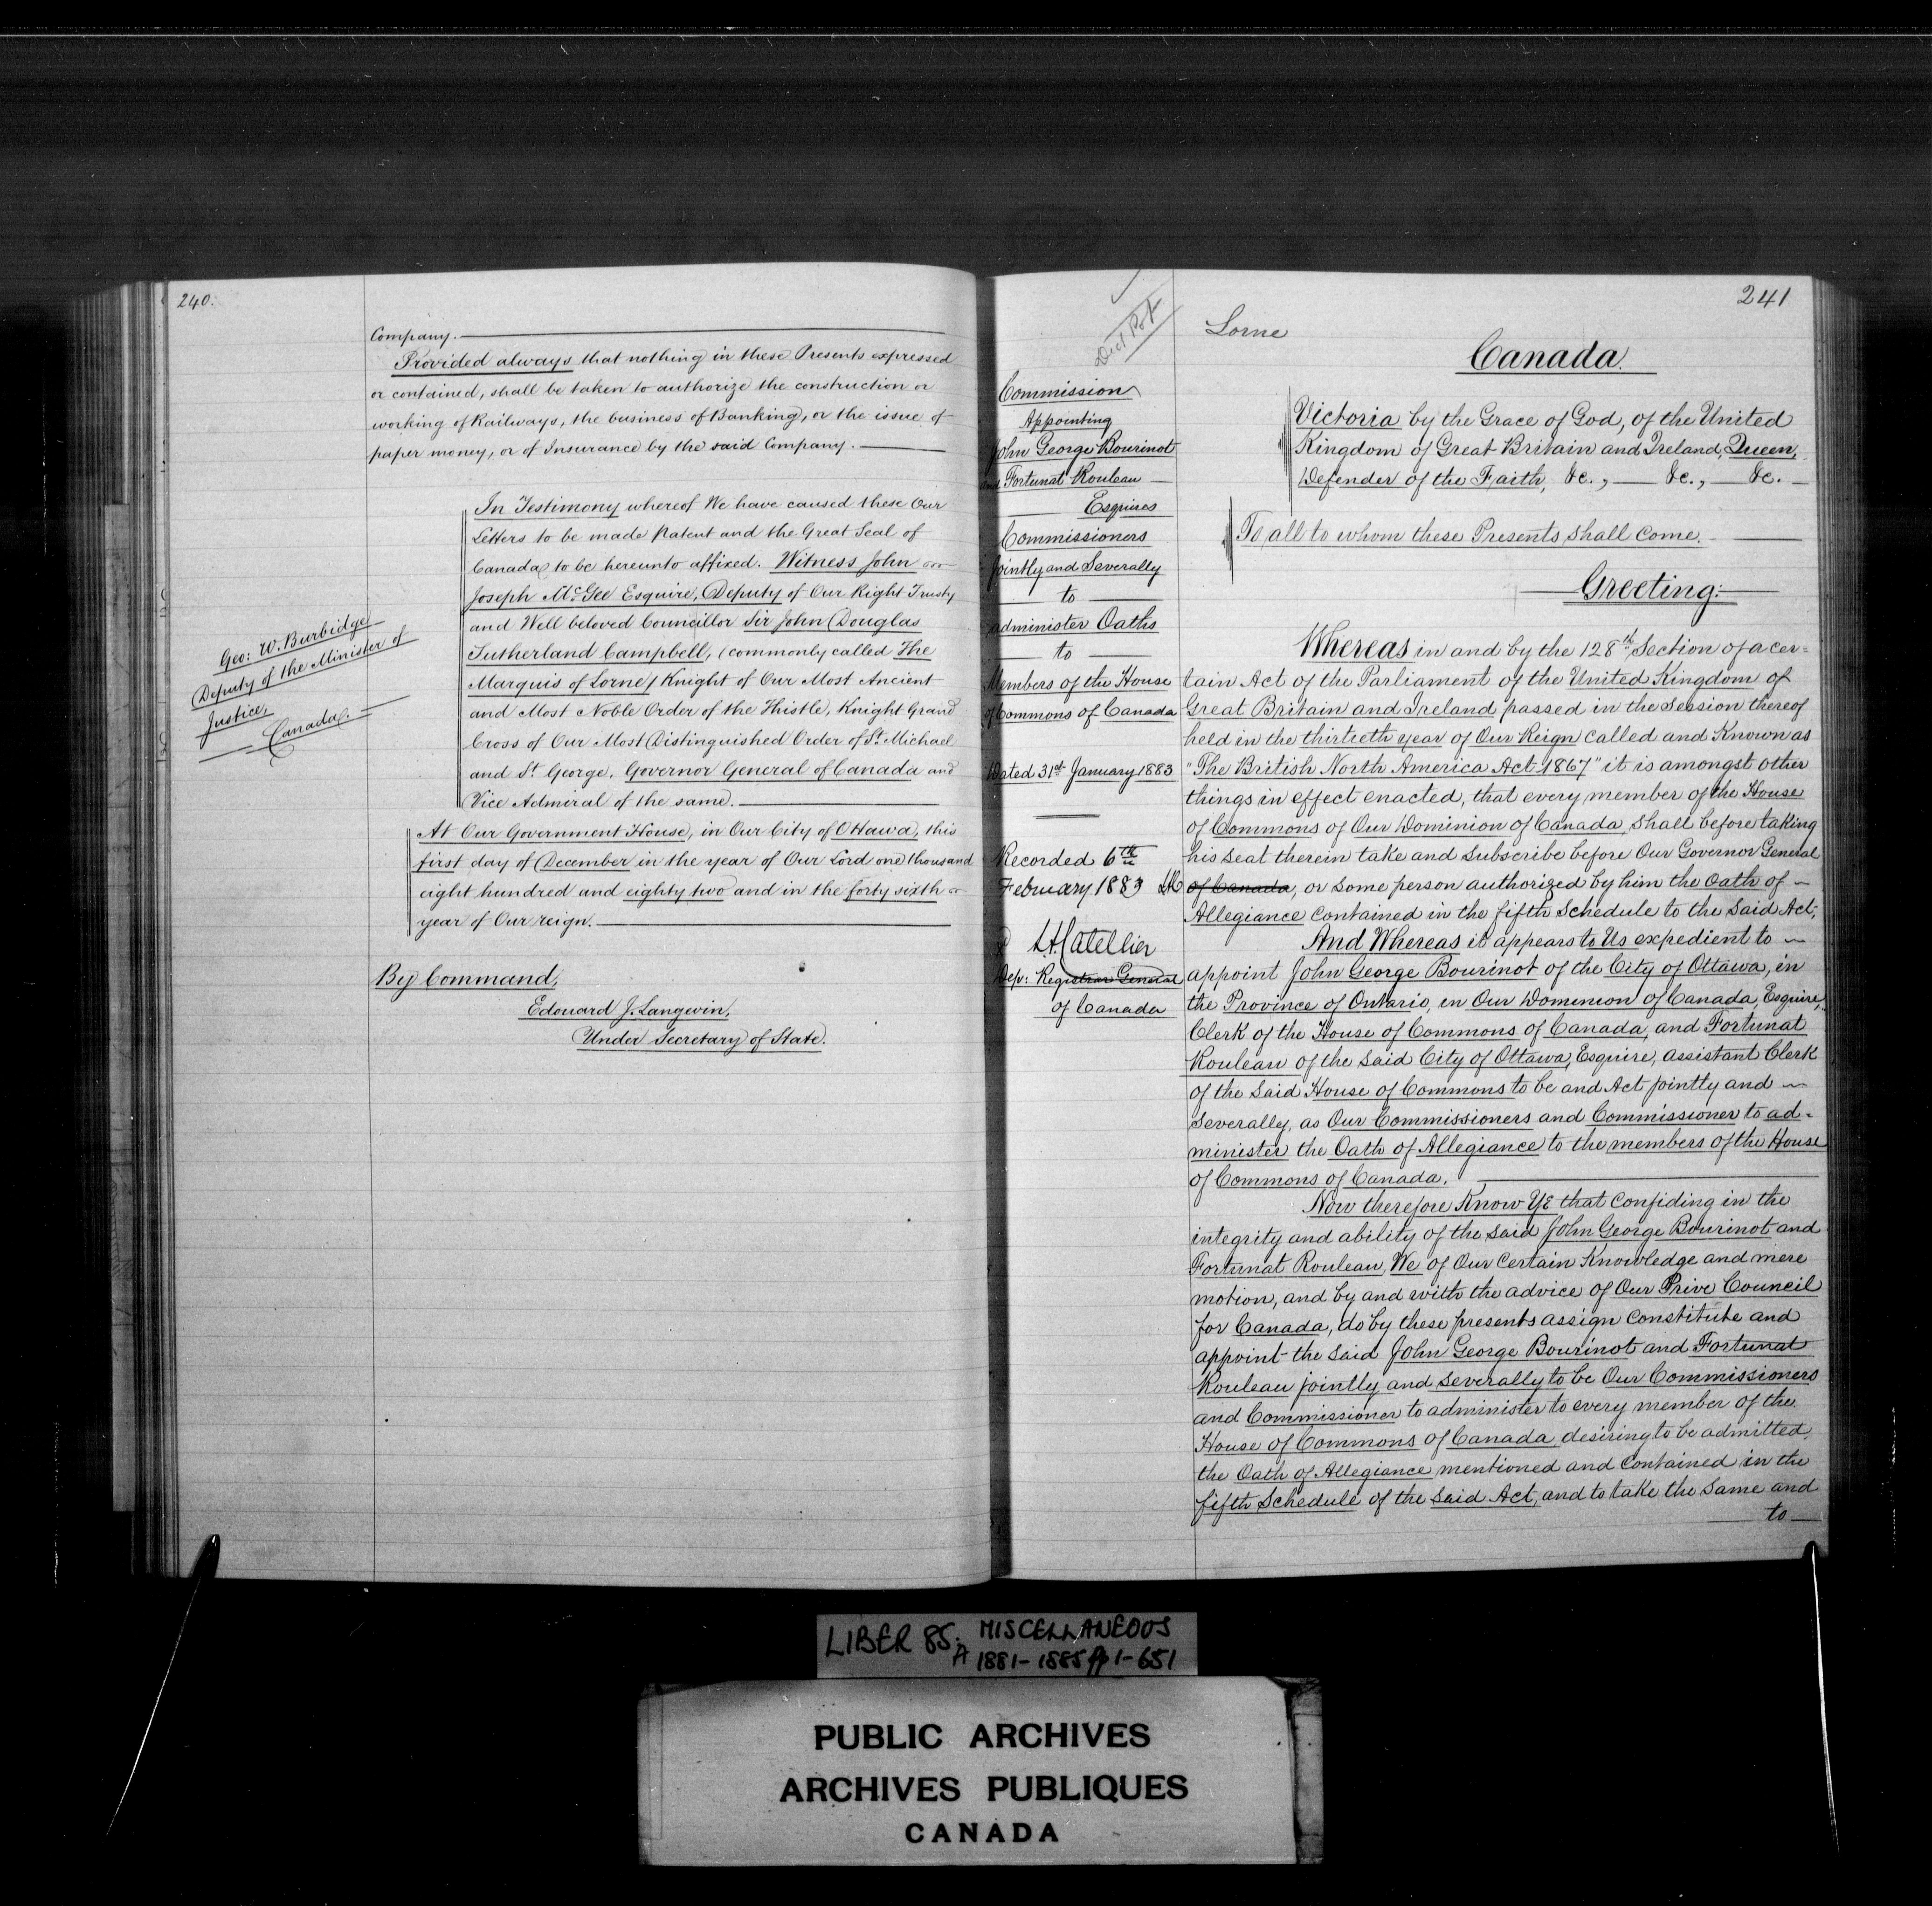 240.
Company.
Provided always that nothing in these Presents expressed
or contained, shall be taken to authorize the construction or
working of Railways, the business of Banking, or the issue of
paper money, or of Insurance by the said Company.
In Testimony whereof We have caused these Our
Letters to be made Patent and the Great Seal of
Canada to be hereunto affixed. Witness John
Joseph McGee Esquire, Deputy of Our Right Trusty
and Well beloved Councillor Sir John Douglas
Sutherland Campbell, (commonly called The
Marquis of Lorne) Knight of Our Most Ancient
and Most Noble Order of the Thistle, Knight Grand
Cross of Our Most Distinguished Order of St. Michael
and St. George, Governor General of Canada and
Vice Admiral of the same.
At Our Government House, in Our City of Ottawa, this
first day of December in the year of Our Lord one thousand
eight hundred and eighty two and in the forty sixth
year of Our reign.
By Command,
Edouard J. Langevin,
Under Secretary of State.
Geo: W. Burbidge
Deputy of the Minister of
Justice,
Canada.
241
Commission
Appointing
John George Bourinot
and Fortunat Rouleau
Esquires
Commissioners
Jointly and Severally
to
administer Oaths
to
Members of the House
of Commons of Canada
Dated 31st January 1883
Recorded 6th
February 1883
L.H. Catellier
Dep: Registrar General
of Canada
Lorne
Canada.
Victoria by the Grace of God, of the United
Kingdom of Great Britain and Ireland, Queen,
Defender of the Faith, &c., &c., &c.
To all to whom these Presents shall come.
Greeting:
Whereas in and by the 128th Section of a cer=
tain Act of the Parliament of the United Kingdom of
Great Britain and Ireland passed in the Session thereof
held in the thirtieth year of Our Reign called and Known as
"The British North America Act 1867" it is amongst other
things in effect enacted, that every member of the House
of Commons of Our Dominion of Canada, shall before taking
his seat therein take and subscribe before Our Governor General
of Canada, or some person authorized by him the Oath of
Allegiance contained in the fifth Schedule to the said Act;
And Whereas it appears to Us expedient to
appoint John George Bourinot of the City of Ottawa, in
the Province of Ontario, in Our Dominion of Canada, Esquire,
Clerk of the House of Commons of Canada, and Fortunat
Rouleau of the said City of Ottawa, Esquire, assistant Clerk
of the said House of Commons to be and Act jointly and
severally, as Our Commissioners and Commissioner to ad=
minister the Oath of Allegiance to the members of the House
of Commons of Canada.
Now therefore Know Ye that confiding in the
integrity and ability of the said John George Bourinot and
Fortunat Rouleau, We of Our certain Knowledge and mere
motion, and by and with the advice of Our Prive Council
for Canada, do by these presents assign constitute and
appoint the said John George Bourinot and Fortunat
Rouleau jointly and severally to be Our Commissioners
and Commissioner to administer to every member of the
House of Commons of Canada desiring to be admitted,
the Oath of Allegiance mentioned and contained in the
fifth Schedule of the said Act, and to take the same and
to
LIBER 85. MISCELLANEOUS
A 1881-1885 pp 1-651
PUBLIC ARCHIVES
ARCHIVES PUBLIQUES
CANADA